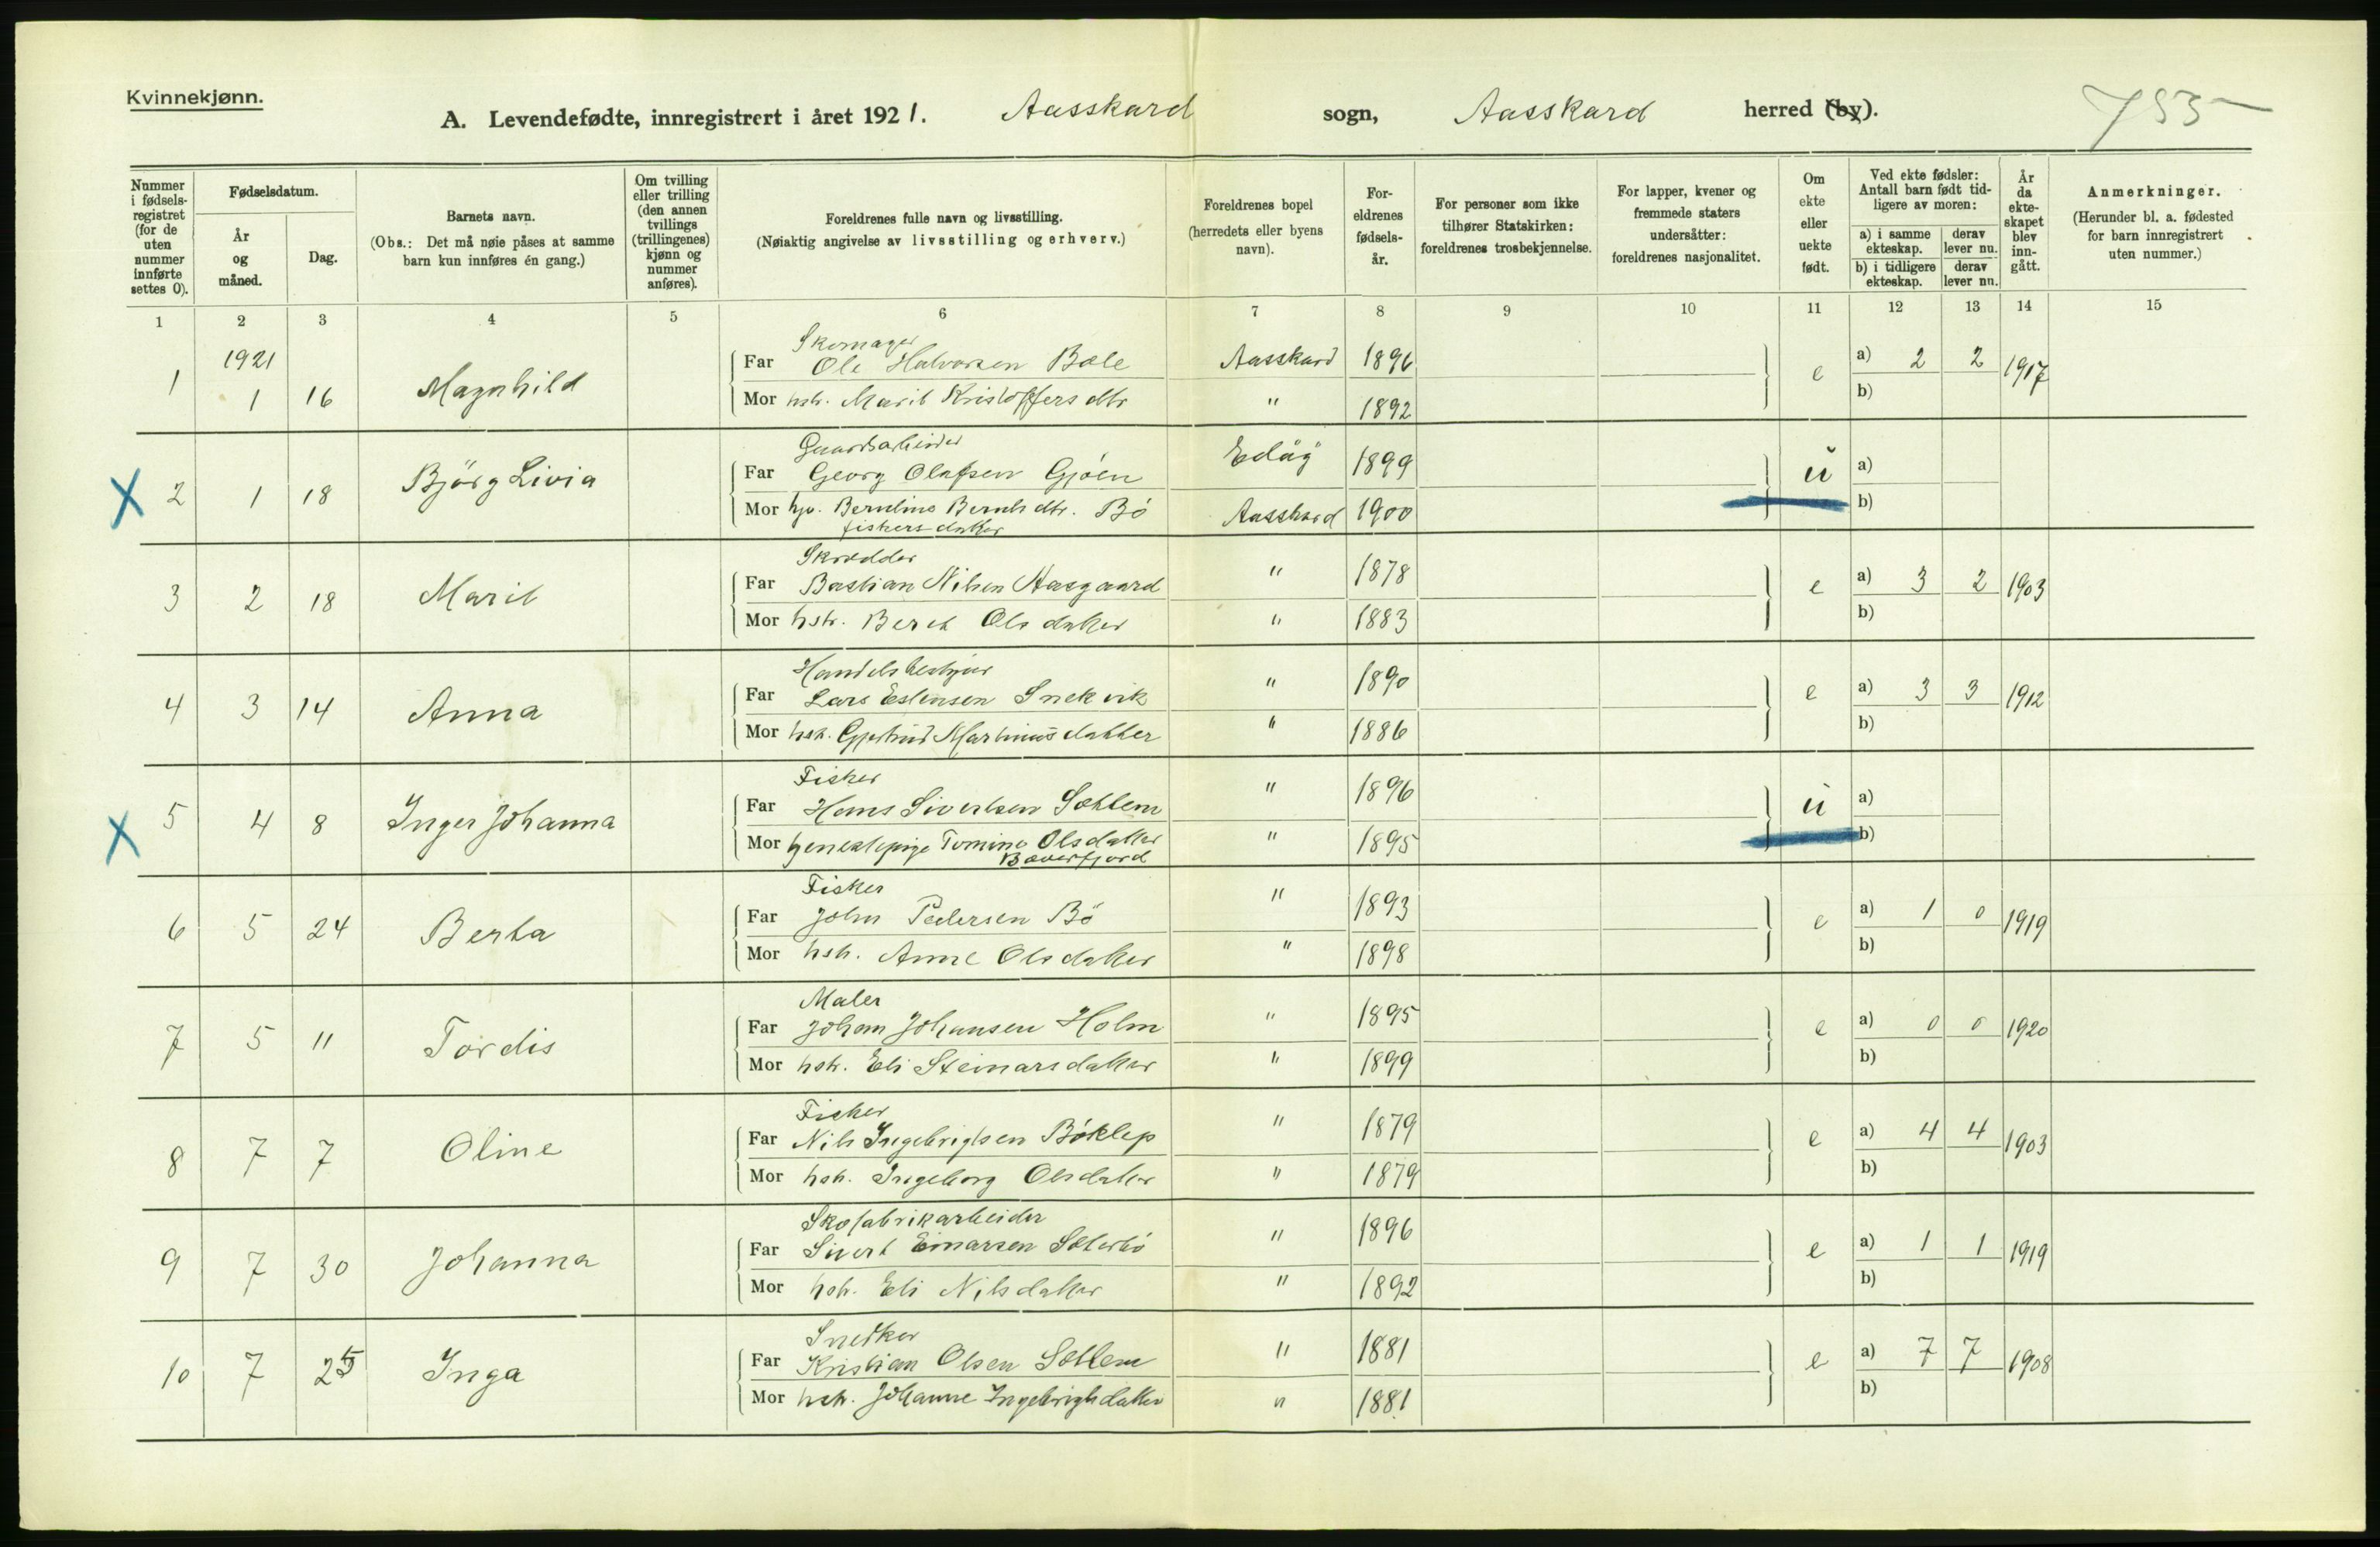 Kvinnekjønn.
A. Levendefødte, innregistrert i året 1921. Aasskard sogn, Aasskard herred (by).
Nummer i fødsels-registret (for de uten nummer innførte settes 0).
Fødselsdatum.
År og måned.
Dag.
Barnets navn.
(Obs.: Det må nøie påses at samme barn kun innføres én gang.)
Om tvilling eller trilling (den annen tvillings (trillingenes) kjønn og nummer anføres).
Foreldrenes fulle navn og livsstilling.
(Nøiaktig angivelse av livsstilling og erhverv.)
Foreldrenes bopel (herredets eller byens navn).
For-eldrenes fødsels-år.
For personer som ikke tilhører Statskirken: foreldrenes trosbekjennelse.
For lapper, kvener og fremmede staters undersåtter: foreldrenes nasjonalitet.
Om ekte eller uekte født.
Ved ekte fødsler: Antall barn født tid-ligere av moren:
a) i samme ekteskap. derav lever nu.
b) i tidligere ekteskap. derav lever nu.
År da ekte-skapet blev inn-gått.
Anmerkninger.
(Herunder bl. a. fødested for barn innregistrert uten nummer.)
1 2 3 4 5 6 7 8 9 10 11 12 13 14 15
1921
Skomager
Far Ole Halvorsen Bæle Aasskard 1896
1 1 16 Magnhild e a) 2 2 1917
Mor hstr. Marit Kristoffersdtr " 1892 b)
Gaardsarbeider
Far Georg Olafsen Gjöen Edöy 1899
X 2 1 18 Björg Livia u a)
Mor Bö Aasskard 1900 b)
fiskersdatter
Skrædder
Far Bastian Nilsen Aasgaard " 1878
3 2 18 Marit e a) 3 2 1903
Mor hstr. Beret Olsdatter " 1883 b)
Handelsbestyrer
Far Lars Estensen Snekvik " 1890
4 3 14 Anna e a) 3 3 1912
Mor hstr. Gjertrud Martinusdatter " 1886 b)
Fisker
Far Hans Sivertsen Sættem " 1896
X 5 4 8 Inger Johanna u a)
Mor Olsdatter " 1895 b)
Bæverfjord
Fisker
Far John Pedersen Bö " 1893
6 5 24 Berta e a) 1 0 1919
Mor hstr. Anne Olsdatter " 1898 b)
Maler
Far Johan Johansen Holm " 1895
7 5 11 Tordis e a) 0 0 1920
Mor hstr. Eli Steinarsdatter " 1899 b)
Fisker
Far Nils Ingebrigtsen Böklep " 1879
8 7 7 Oline e a) 4 4 1903
Mor hstr. Ingeborg Olsdatter " 1879 b)
Skofabrikarbeider
Far Sivert Einarsen Sæterbö " 1896
9 7 30 Johanna e a) 1 1 1919
Mor hstr. Eli Nilsdatter " 1892 b)
Snedker
Far Kristian Olsen Sættem " 1881
10 7 25 Inga e a) 7 7 1908
Mor hstr. Johanne Ingebrigtsdatter " 1881 b)